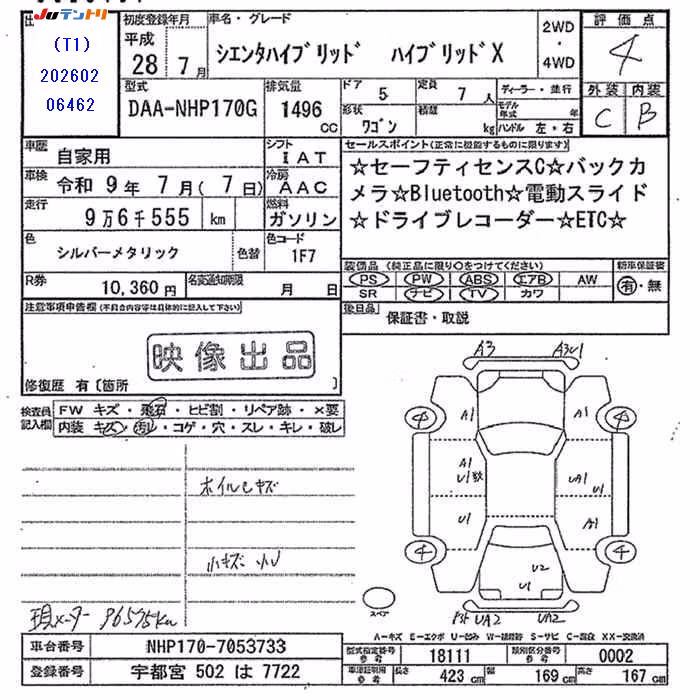 JUテントリ
(T1)
202602
06462
初度登録年月
平成
28年7月
車名・グレード
シエンタハイブリッド ハイブリッドX
2WD
・
4WD
評価点
4
外装 内装
C B
型式
DAA-NHP170G
排気量
1496
CC
ドア 5
定員 7人
形状 ワゴン
積載 kg
ディーラー・並行
モデル年式 年
ハンドル 左・右
車歴
自家用
シフト
IAT
車検
令和 9年 7月( 7日)
冷房
AAC
走行
9万6千555 km
燃料
ガソリン
色
シルバーメタリック
色替
色コード
1F7
R券
10,360円
名変通知期限
月 日
セールスポイント(正常に機能するものに限ります)
☆セーフティセンスC☆バックカ
メラ☆Bluetooth☆電動スライド
☆ドライブレコーダー☆ETC☆
装備品 (純正品に限り○をつけてください)
PS PW ABS エアB AW
SR ナビ TV カワ
新車保証書
有・無
後日品
保証書・取説
注意事項申告欄(不具合内容等は具体的に記入して下さい)
映像出品
修復歴 有〔箇所 〕
検査員記入欄
FW キズ・飛石・ヒビ割・リペア跡・×要
内装 キズ・汚レ・コゲ・穴・スレ・キレ・破レ
ホイルキズ
小キズ 小U
現メーター 96575km
A3 A3U1
4 A1 A1 4
A1
U1数
UA1
U1
U1 A1
4 4
U2
U1
スペア
UA2 UA2
A-キズ E-エクボ U-凹み W-補修跡 S-サビ C-腐食 XX-交換済
車台番号
NHP170-7053733
登録番号
宇都宮 502 は 7722
型式指定番号
参考
18111
類別区分番号
参考
0002
車庫証明用
参考
長さ 423 cm
幅 169 cm
高さ 167 cm